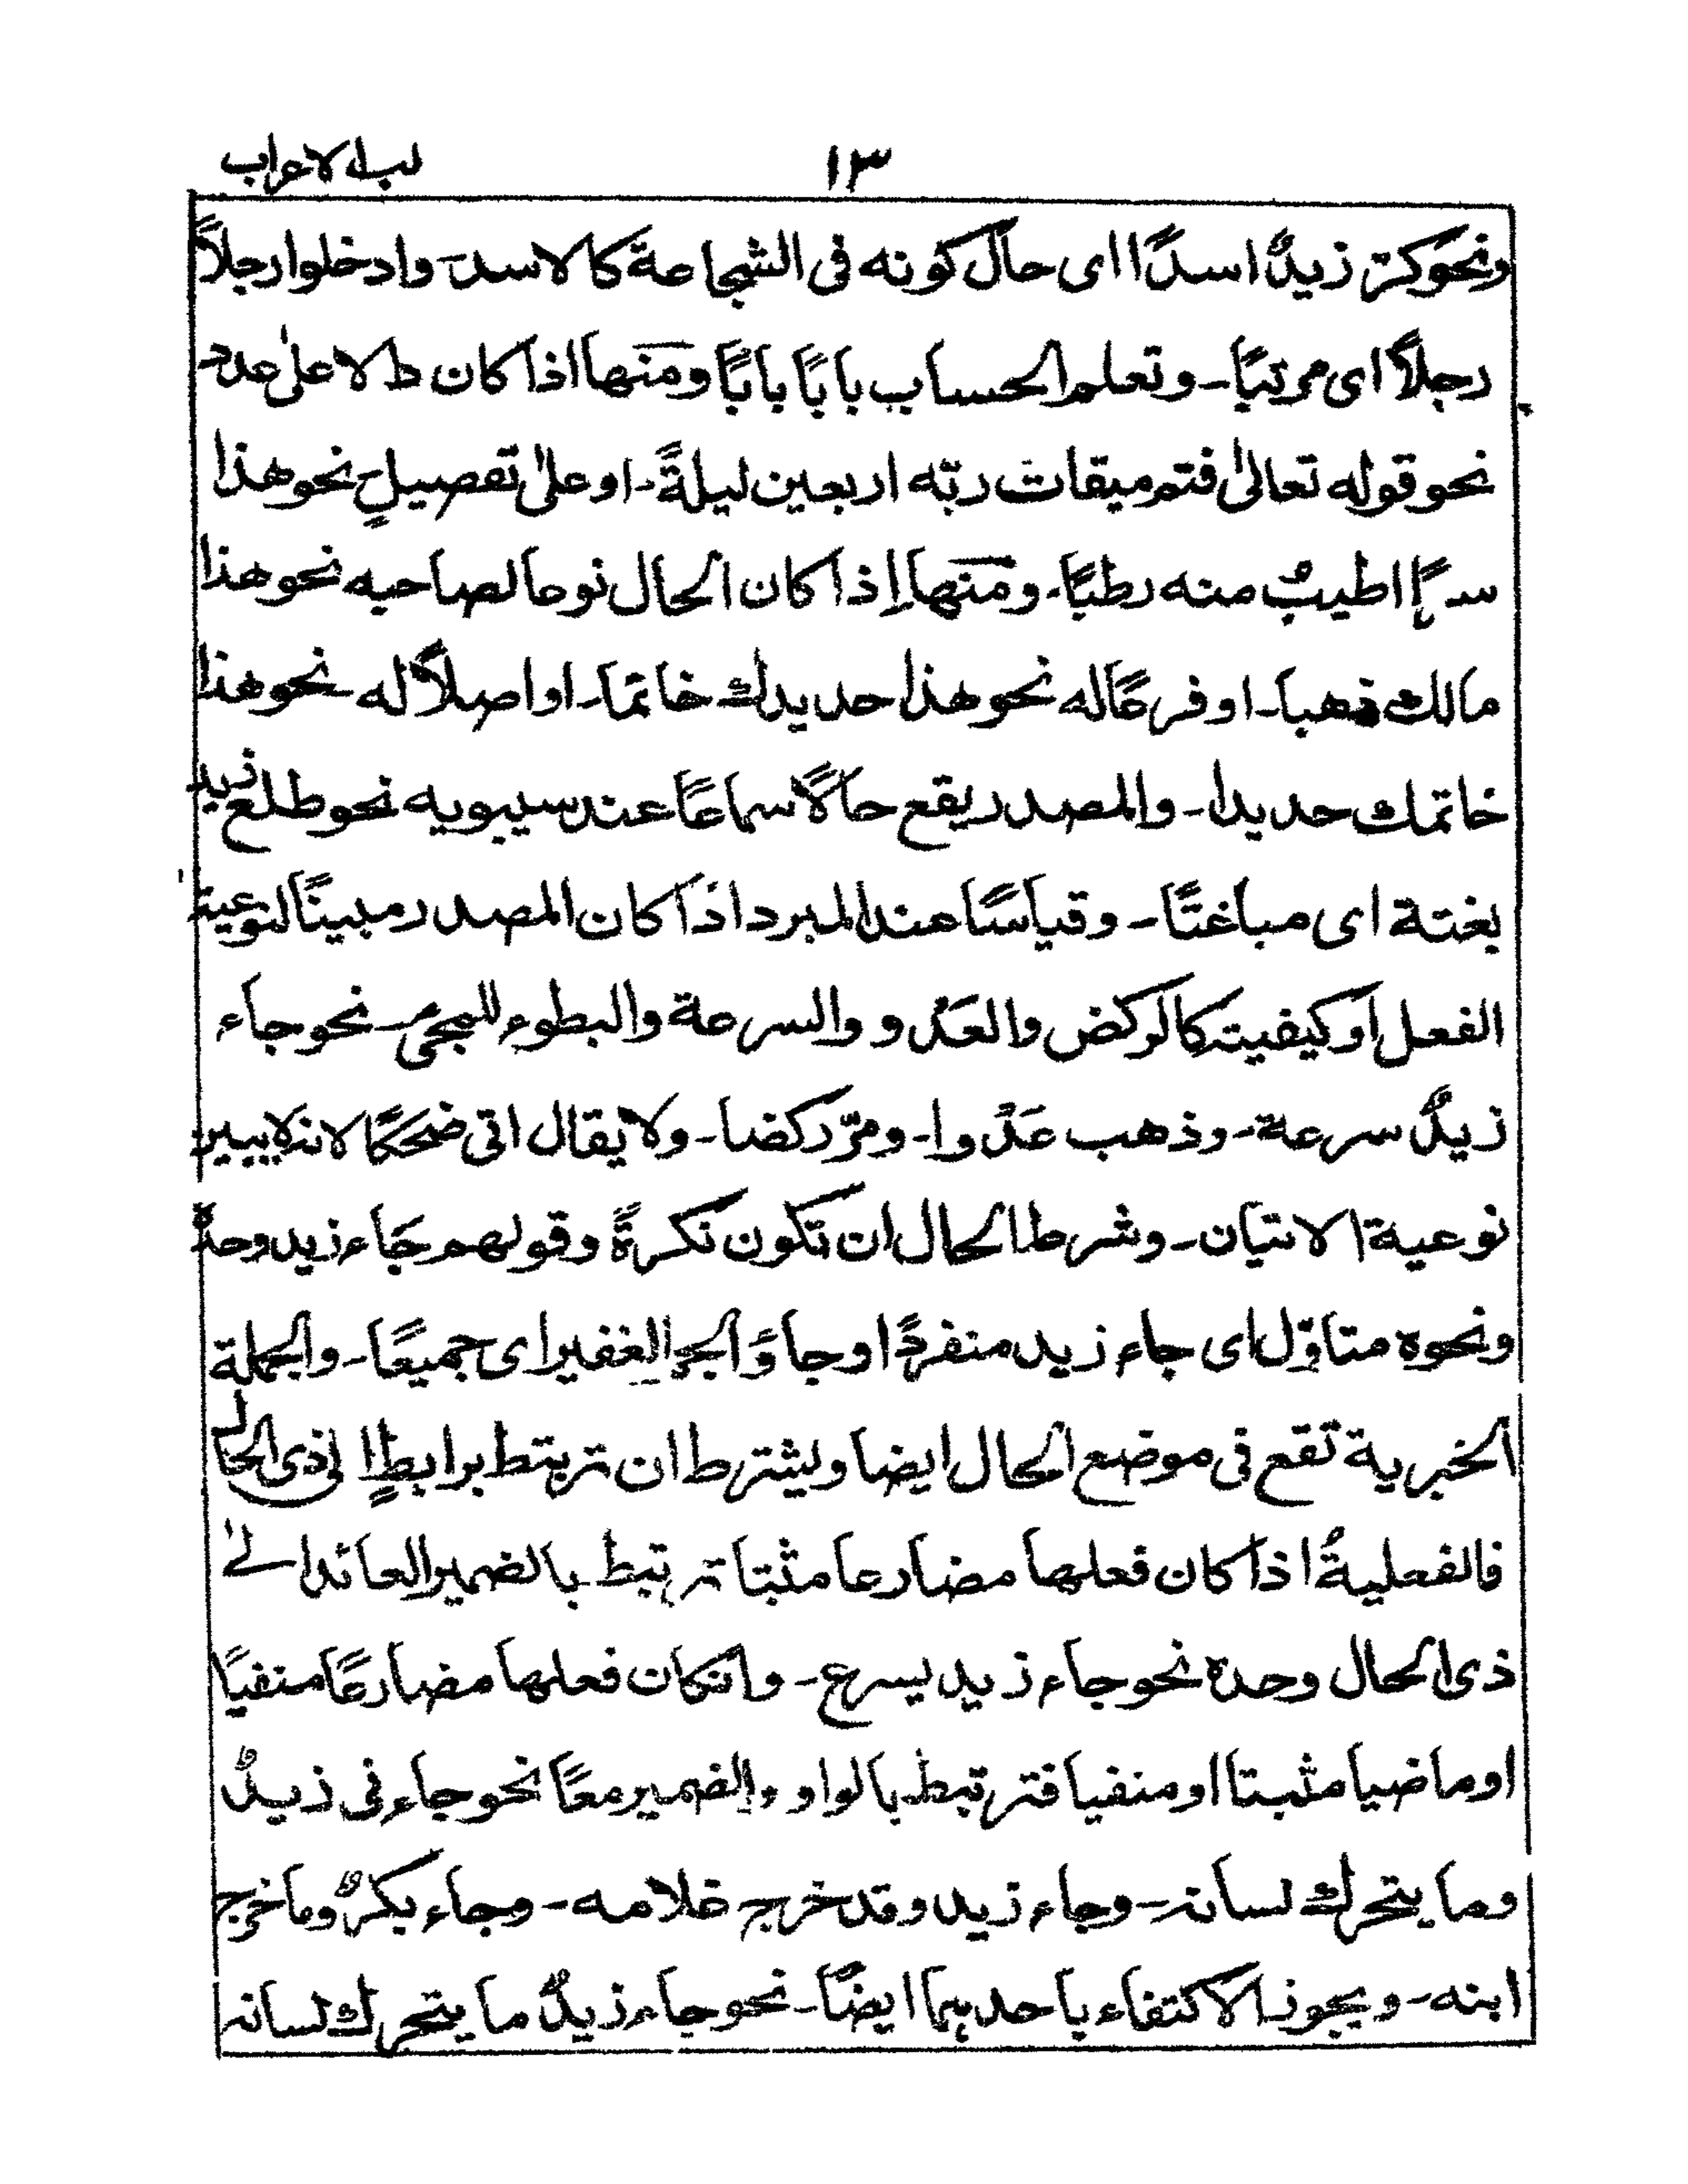 لب الاعراب
١٣
ونحو كرّ زيدٌ اسدًا اى حال كونه فى الشجاعة كالاسد۔ وادخلوا رجلاً
رجلاً اى مرتبًا۔ وتعلم الحساب بابًا بابًا ومنها اذا كان دالا على عدد
نحو قوله تعالىٰ فتم ميقات ربّه اربعين ليلةً۔ او علىٰ تفصيلٍ نحو هذا
اطيبُ منه رطبًا۔ ومنها إذا كان الحال نوعا لصاحبه نحو هذا
مالك ذهبا۔ او فرعًا له نحو هذا حديدك خاتمًا۔ او اصلاً له۔ نحو هذا
خاتمك حديدا۔ والمصدر يقع حالًا سماعًا عند سيبويه نحو طلع زيد
بغتة اى مباغتًا۔ وقياسًا عند المبرد اذا كان المصدر مبينًا لنوعية
الفعل او كيفيته كالركض والعَدْو والسرعة والبطوء للمجئ۔ نحو جاء
زيدٌ سرعة۔ وذهب عَدْوا۔ ومرّ ركضا۔ ولا يقال اتى ضحكًا لانه لا يبين
نوعية الاتيان۔ وشرط الحال ان تكون نكرةً وقولهم جَاء زيد وحدهٗ
ونحوه متاوّل اى جاء زيد منفردًا او جاؤا الجمّ الغفير اى جميعًا۔ والجملة
الخبرية تقع فى موضع الحال ايضا ويشترط ان ترتبط برابطٍ الى ذى الحال
فالفعليةُ اذا كان فعلها مضارعا مثبتا ترتبط بالضمير العائد الىٰ
ذى الحال وحده نحو جاء زيد يسرع۔ وانكان فعلها مضارعًا منفيًا
او ماضيا مثبتا او منفيا فترتبط بالواو والضمير معًا نحو جاءنى زيدٌ
وما يتحرك لسانه۔ وجاء زيد وقد خرج غلامه۔ وجاء بكرٌ وما خرج
ابنه۔ ويجوز الاكتفاء باحدهما ايضًا۔ نحو جاء زيدٌ ما يتحرك لسانه